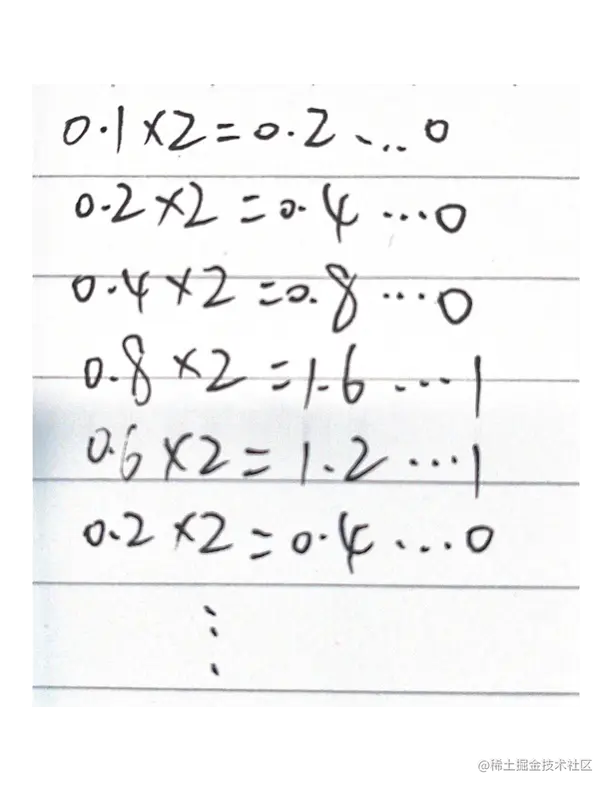 0.1×2=0.2...0
0.2×2=0.4...0
0.4×2=0.8...0
0.8×2=1.6...1
0.6×2=1.2...1
0.2×2=0.4...0
⋮
@稀土掘金技术社区